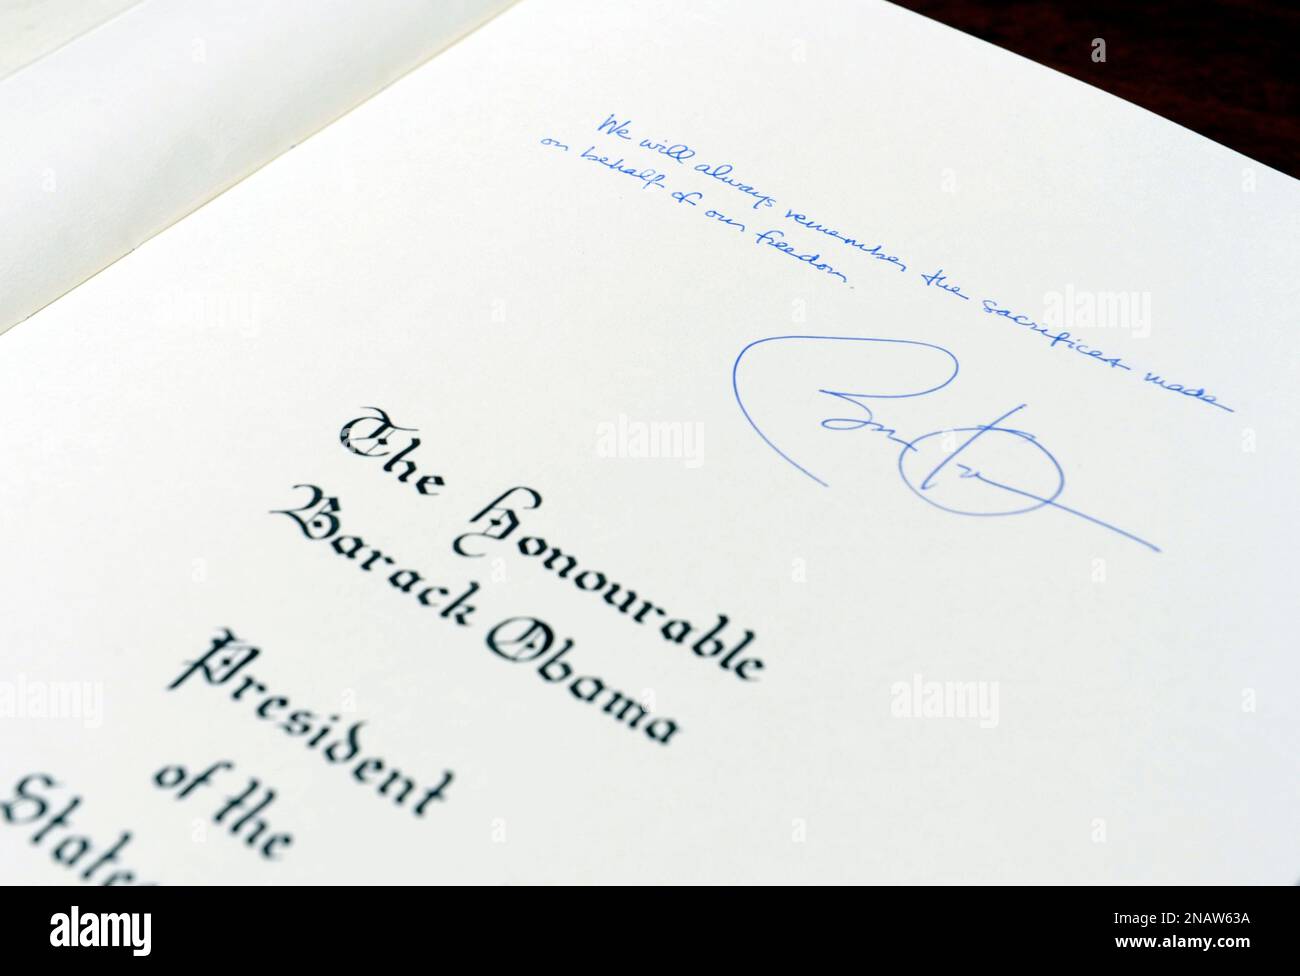 We will always remember the sacrifices made
on behalf of our freedom.
The Honourable
Barack Obama
President
of the
States
a
alamy
alamy
alamy
alamy
alamy
alamy
Image ID: 2NAW63A
www.alamy.com